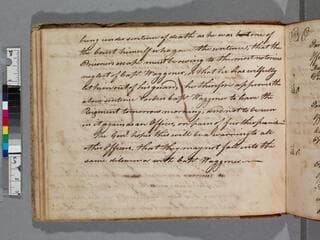 being under sentence of death as he was but one of
the Court himself who gave the sentence, that the
Prisoners escape must be owing to the most notorious
neglect of Capt Waggoner, & that he has wilfully
let him out of his guard, he therefore approves the
above sentence & orders Capt Waggoner to leave the
Regiment tomorrow morning, and not to be seen
in it again as an Officer, on pain of further
The Genl hopes this will be a warning to all
other Officers, that they may not fall into the
same dilemma with Capt Waggoner